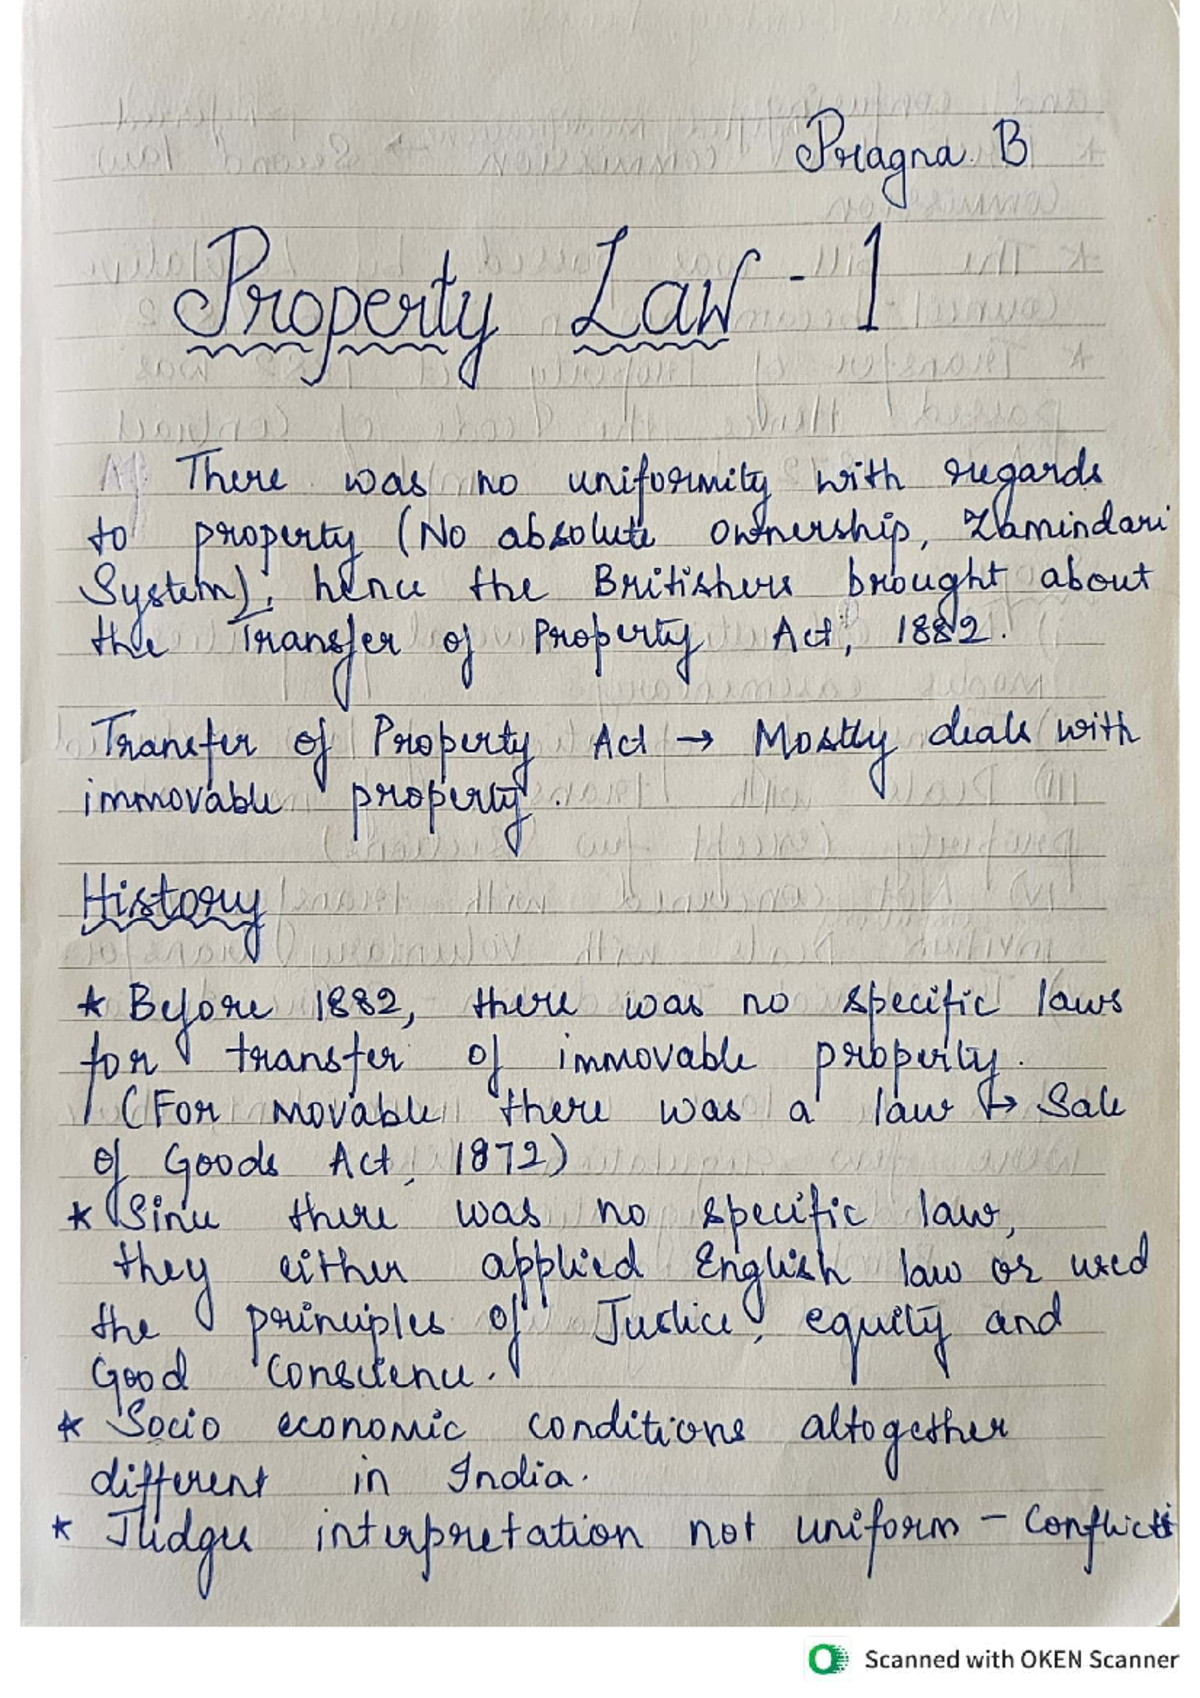 Pragna. B
Property Law - 1
There was no uniformity with regards
to property (No absolute ownership, Zamindari
System), hence the Britishers brought about
the Transfer of Property Act, 1882.
Transfer of Property Act → Mostly deals with
immovable property.
History
* Before 1882, there was no specific laws
for transfer of immovable property.
(For movable there was a law → Sale
of Goods Act, 1872)
* Since there was no specific law,
they either applied English law or used
the principles of Justice, equity and
Good Conscience.
* Socio economic conditions altogether
different in India.
* Judges interpretation not uniform - Conflicts
Scanned with OKEN Scanner